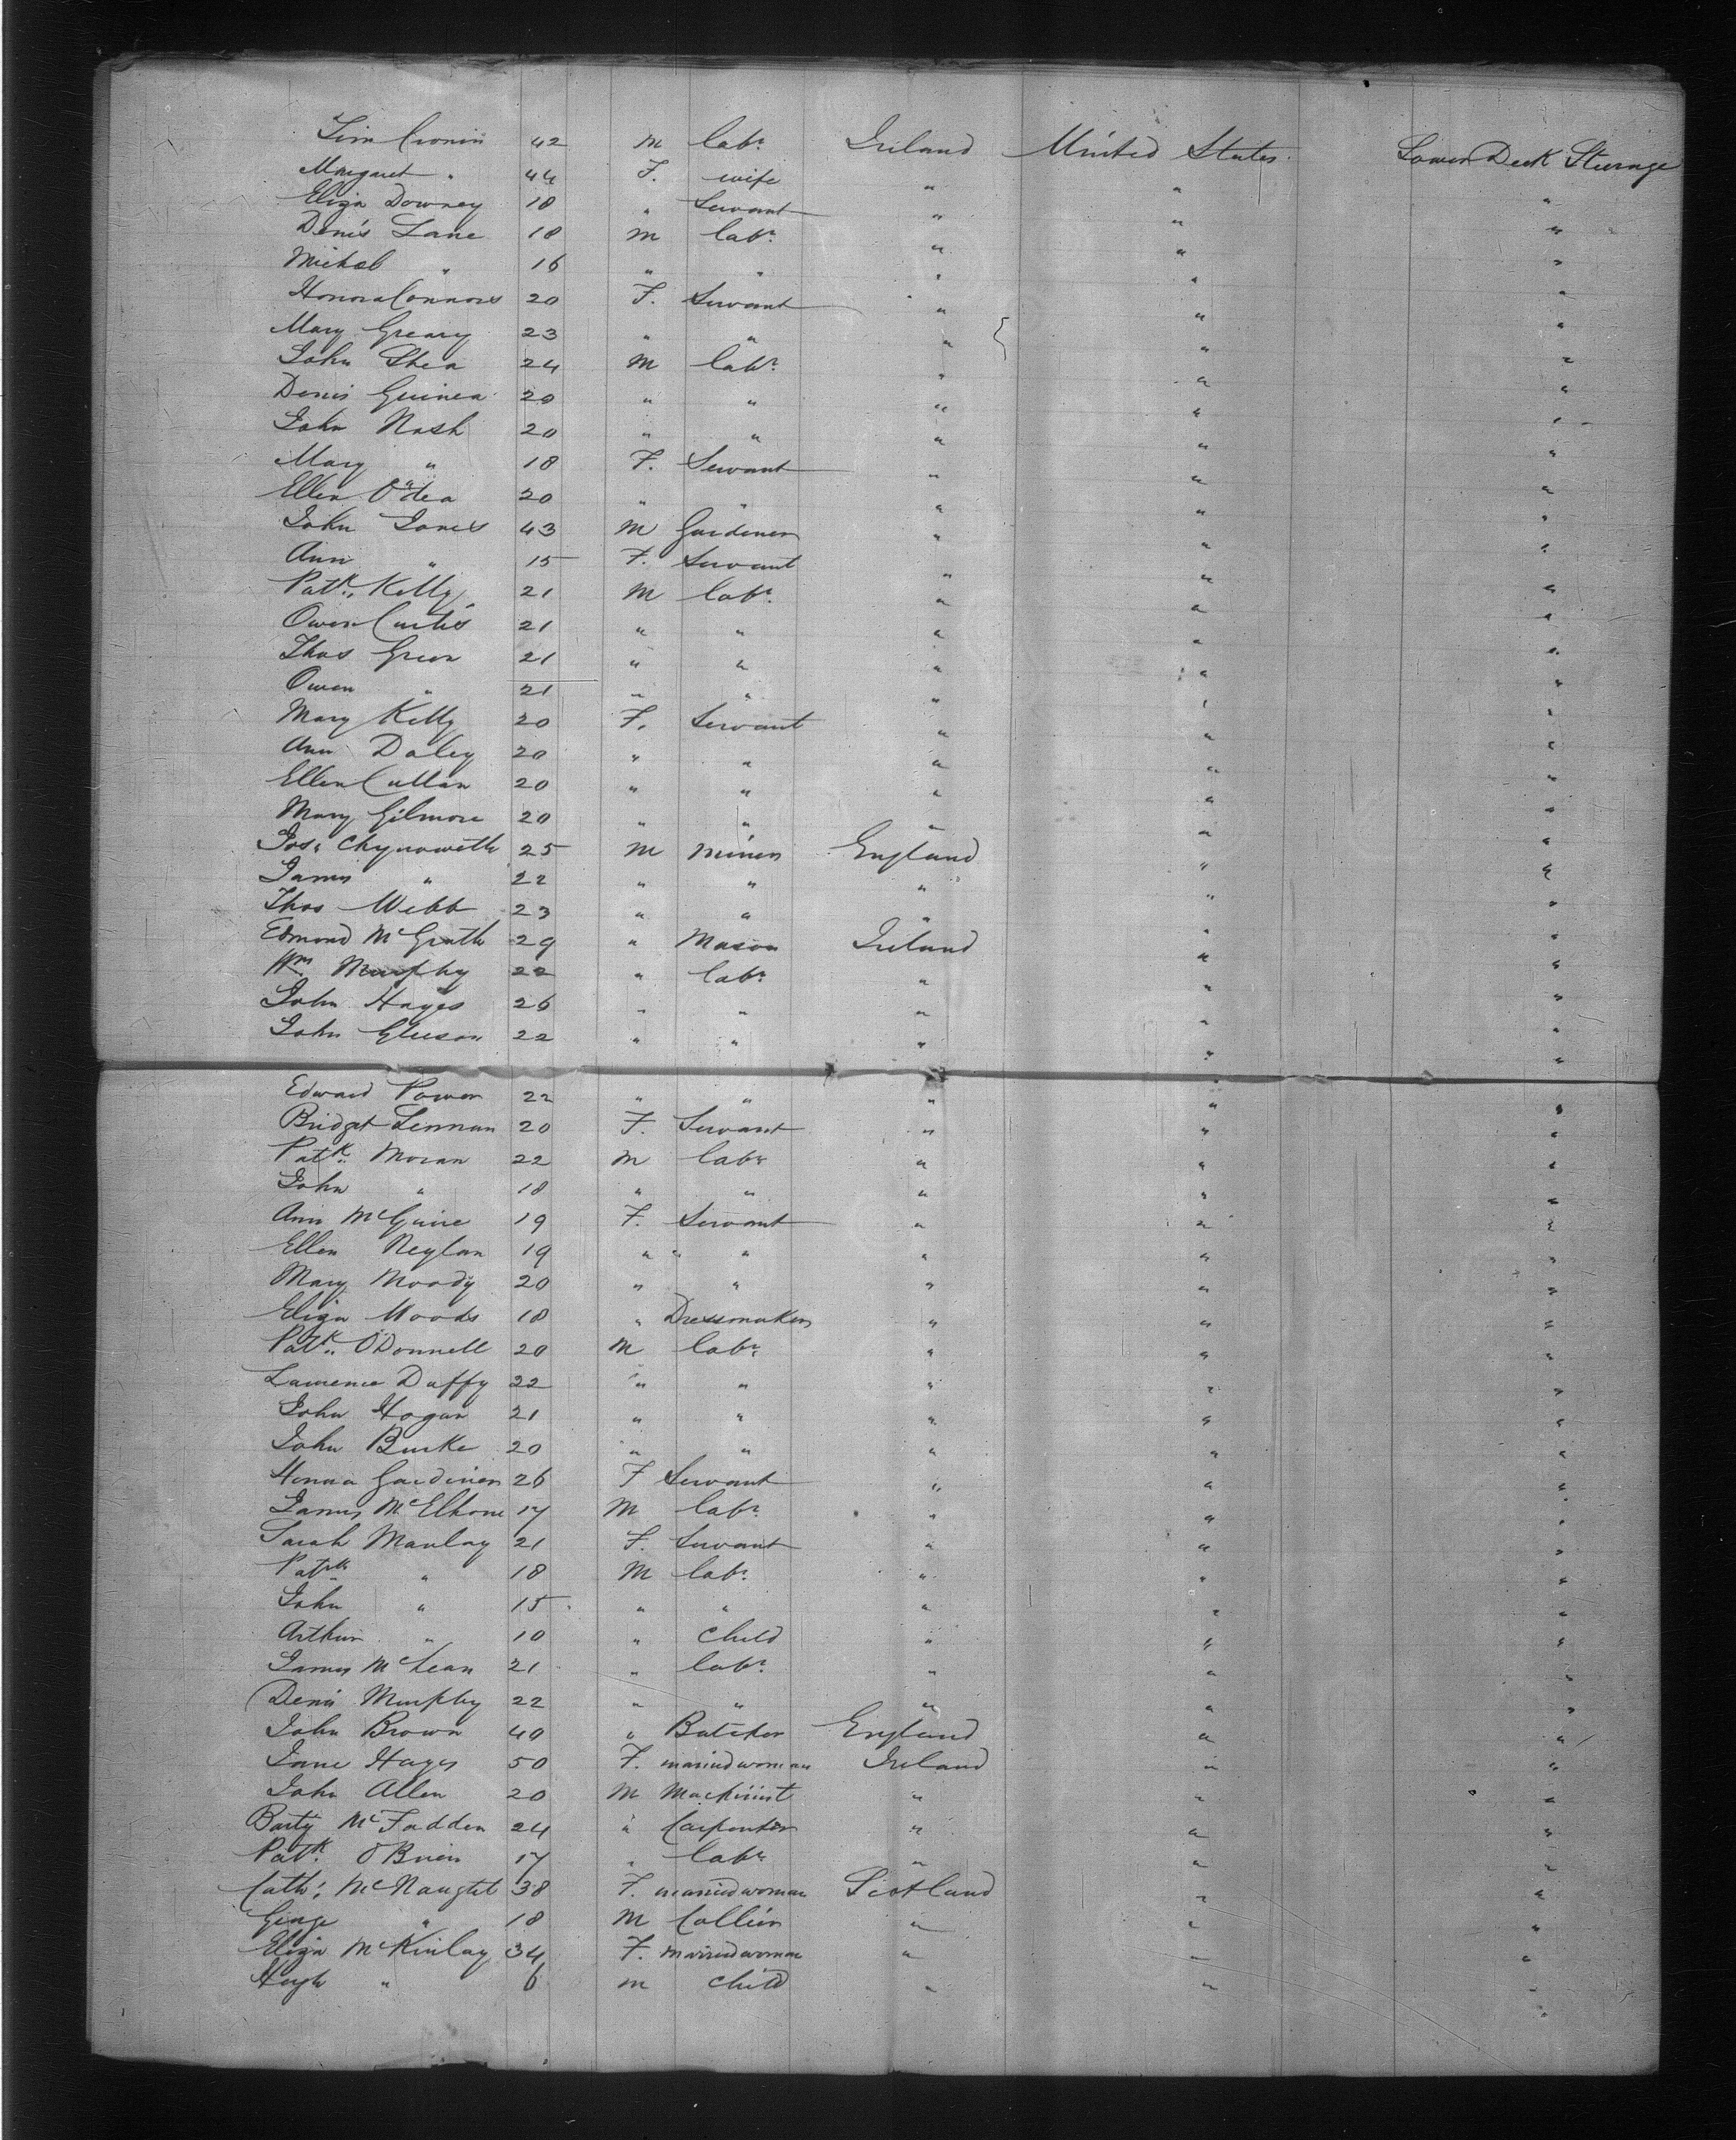 Tim Cronin 42 M labr. Ireland United States. Lower Deck Steerage
Margaret " 44 F. wife " " "
Eliza Downey 18 " Servant " " "
Denis Lane 18 M labr. " " "
Michal " 16 " " " " "
Honora Connors 20 F. Servant " " "
Mary Greary 23 " " " " "
John Shea 24 M labr. " " "
Denis Guinea 20 " " " " "
John Nash 20 " " " " "
Mary " 18 F. Servant " " "
Ellen O'dea 20 " " " " "
John Jones 43 M Gardener " " "
Ann " 15 F. Servant " " "
Patk. Kelly 21 M labr. " " "
Owen Curtis 21 " " " " "
Thos Green 21 " " " " "
Owen " 21 " " " " "
Mary Kelly 20 F. Servant " " "
Ann Daley 20 " " " " "
Ellen Cullan 20 " " " " "
Mary Gilmore 20 " " " " "
Jos. Chynoweth 25 M Miner England " "
James " 22 " " " " "
Thos Webb 23 " " " " "
Edmond McGrath 29 " Mason Ireland " "
Wm. Murphy 22 " labr. " " "
John Hayes 26 " " " " "
John Gleeson 22 " " " " "
Edward Power 22 " " " " "
Bridget Lennan 20 F. Servant " " "
Patk. Moran 22 M labr " " "
John " 18 " " " " "
Ann McGuire 19 F. Servant " " "
Ellen Neylan 19 " " " " "
Mary Moody 20 " " " " "
Eliza Woods 18 " Dressmaker " " "
Patk. O'Donnell 20 M labr. " " "
Lawrence Duffy 22 " " " " "
John Hogan 21 " " " " "
John Burke 20 " " " " "
Gardiner 26 F Servant " " "
James McElhone 17 M labr. " " "
Sarah Manlay 21 F. Servant " " "
Patk " 18 M labr. " " "
John " 15 " " " " "
Arthur " 10 " Child " " "
James McLean 21 " labr. " " "
Denis Murphy 22 " " " " "
John Brown 40 " Butcher England " "
Jane Hayes 50 F. married woman Ireland " "
John Allen 20 M Machinist " " "
Barty McFadden 24 " Carpenter " " "
Patk. O'Brien 17 " labr. " " "
Cath. McNaughtt 38 F. married woman Scotland " "
George " 18 M Collier " " "
Eliza McKinlay 34 F. married woman " " "
Hugh " 6 M Child " " "